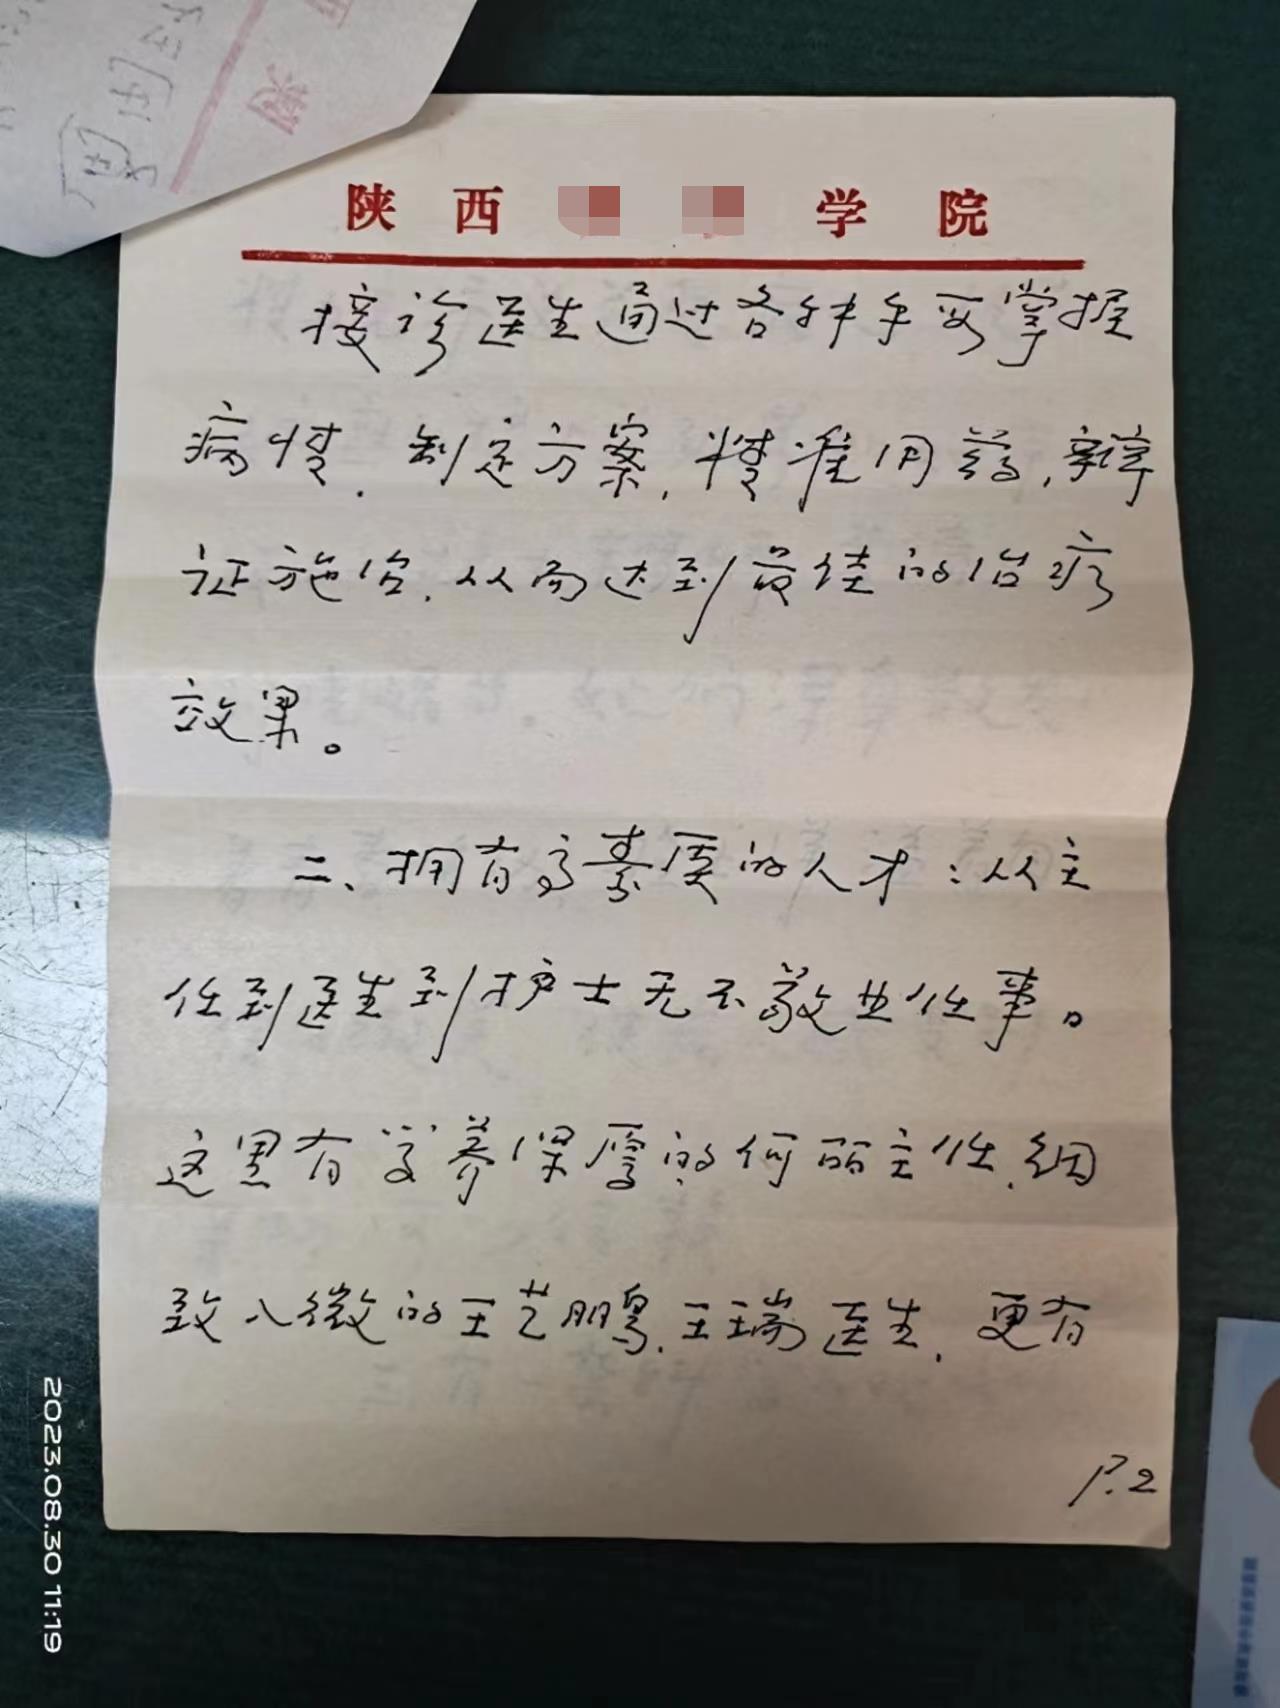 陕西 学院
接诊医生通过各种手段掌握
病情，制定方案，精准用药，辩
证施治，从而达到最佳的治疗
效果。
二、拥有高素质的人才：从主
任到医生到护士无不敬业任事。
这里有学养深厚的何丽主任，细
致入微的王艺鹏，王瑞医生，更有
P.2
2023.08.30 11:19